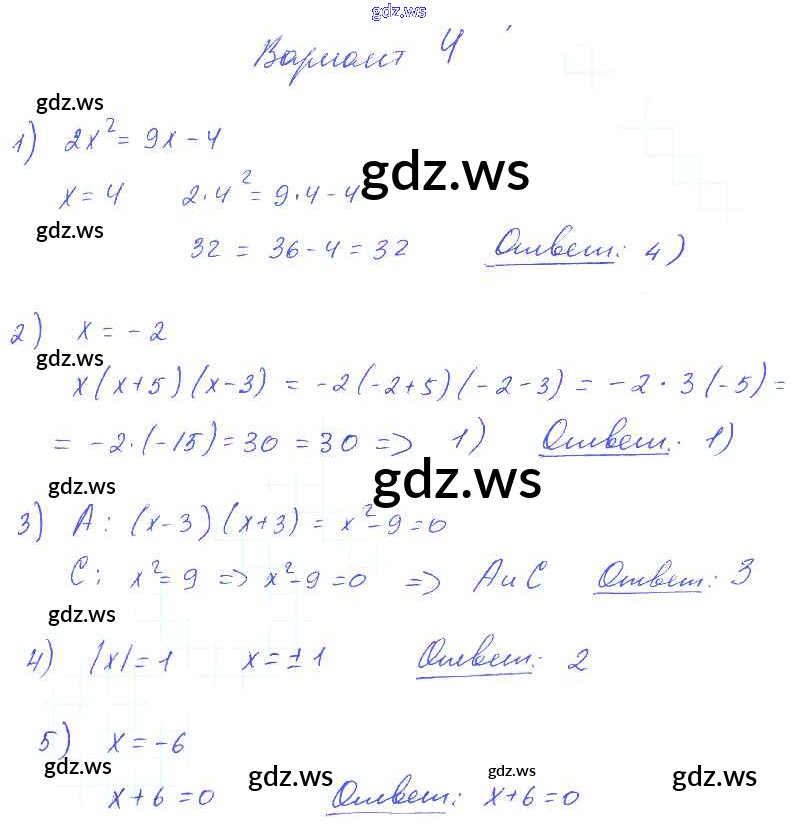 gdz.ws
Вариант 4
gdz.ws
1) 2x² = 9x - 4
gdz.ws
x = 4 2·4² = 9·4 - 4
gdz.ws
32 = 36 - 4 = 32 Ответ: 4)
2) x = -2
gdz.ws
x(x+5)(x-3) = -2(-2+5)(-2-3) = -2·3(-5) =
= -2·(-15) = 30 = 30 => 1) Ответ: 1)
gdz.ws
gdz.ws
3) A: (x-3)(x+3) = x²-9=0
C: x²=9 => x²-9=0 => A и C Ответ: 3
gdz.ws
4) |x|=1 x=±1 Ответ: 2
5) x = -6
gdz.ws gdz.ws gdz.ws gdz.ws
x+6=0 Ответ: x+6=0